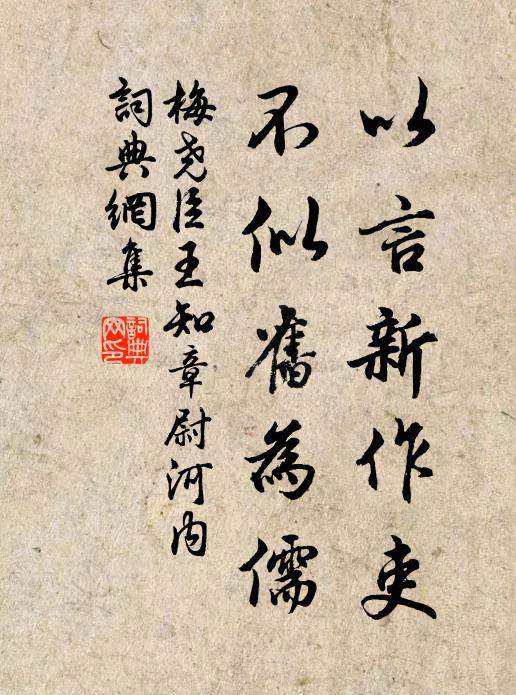 以言新作吏
不似舊為儒
梅尧臣王知章尉河内
詞典網集
詞典網印